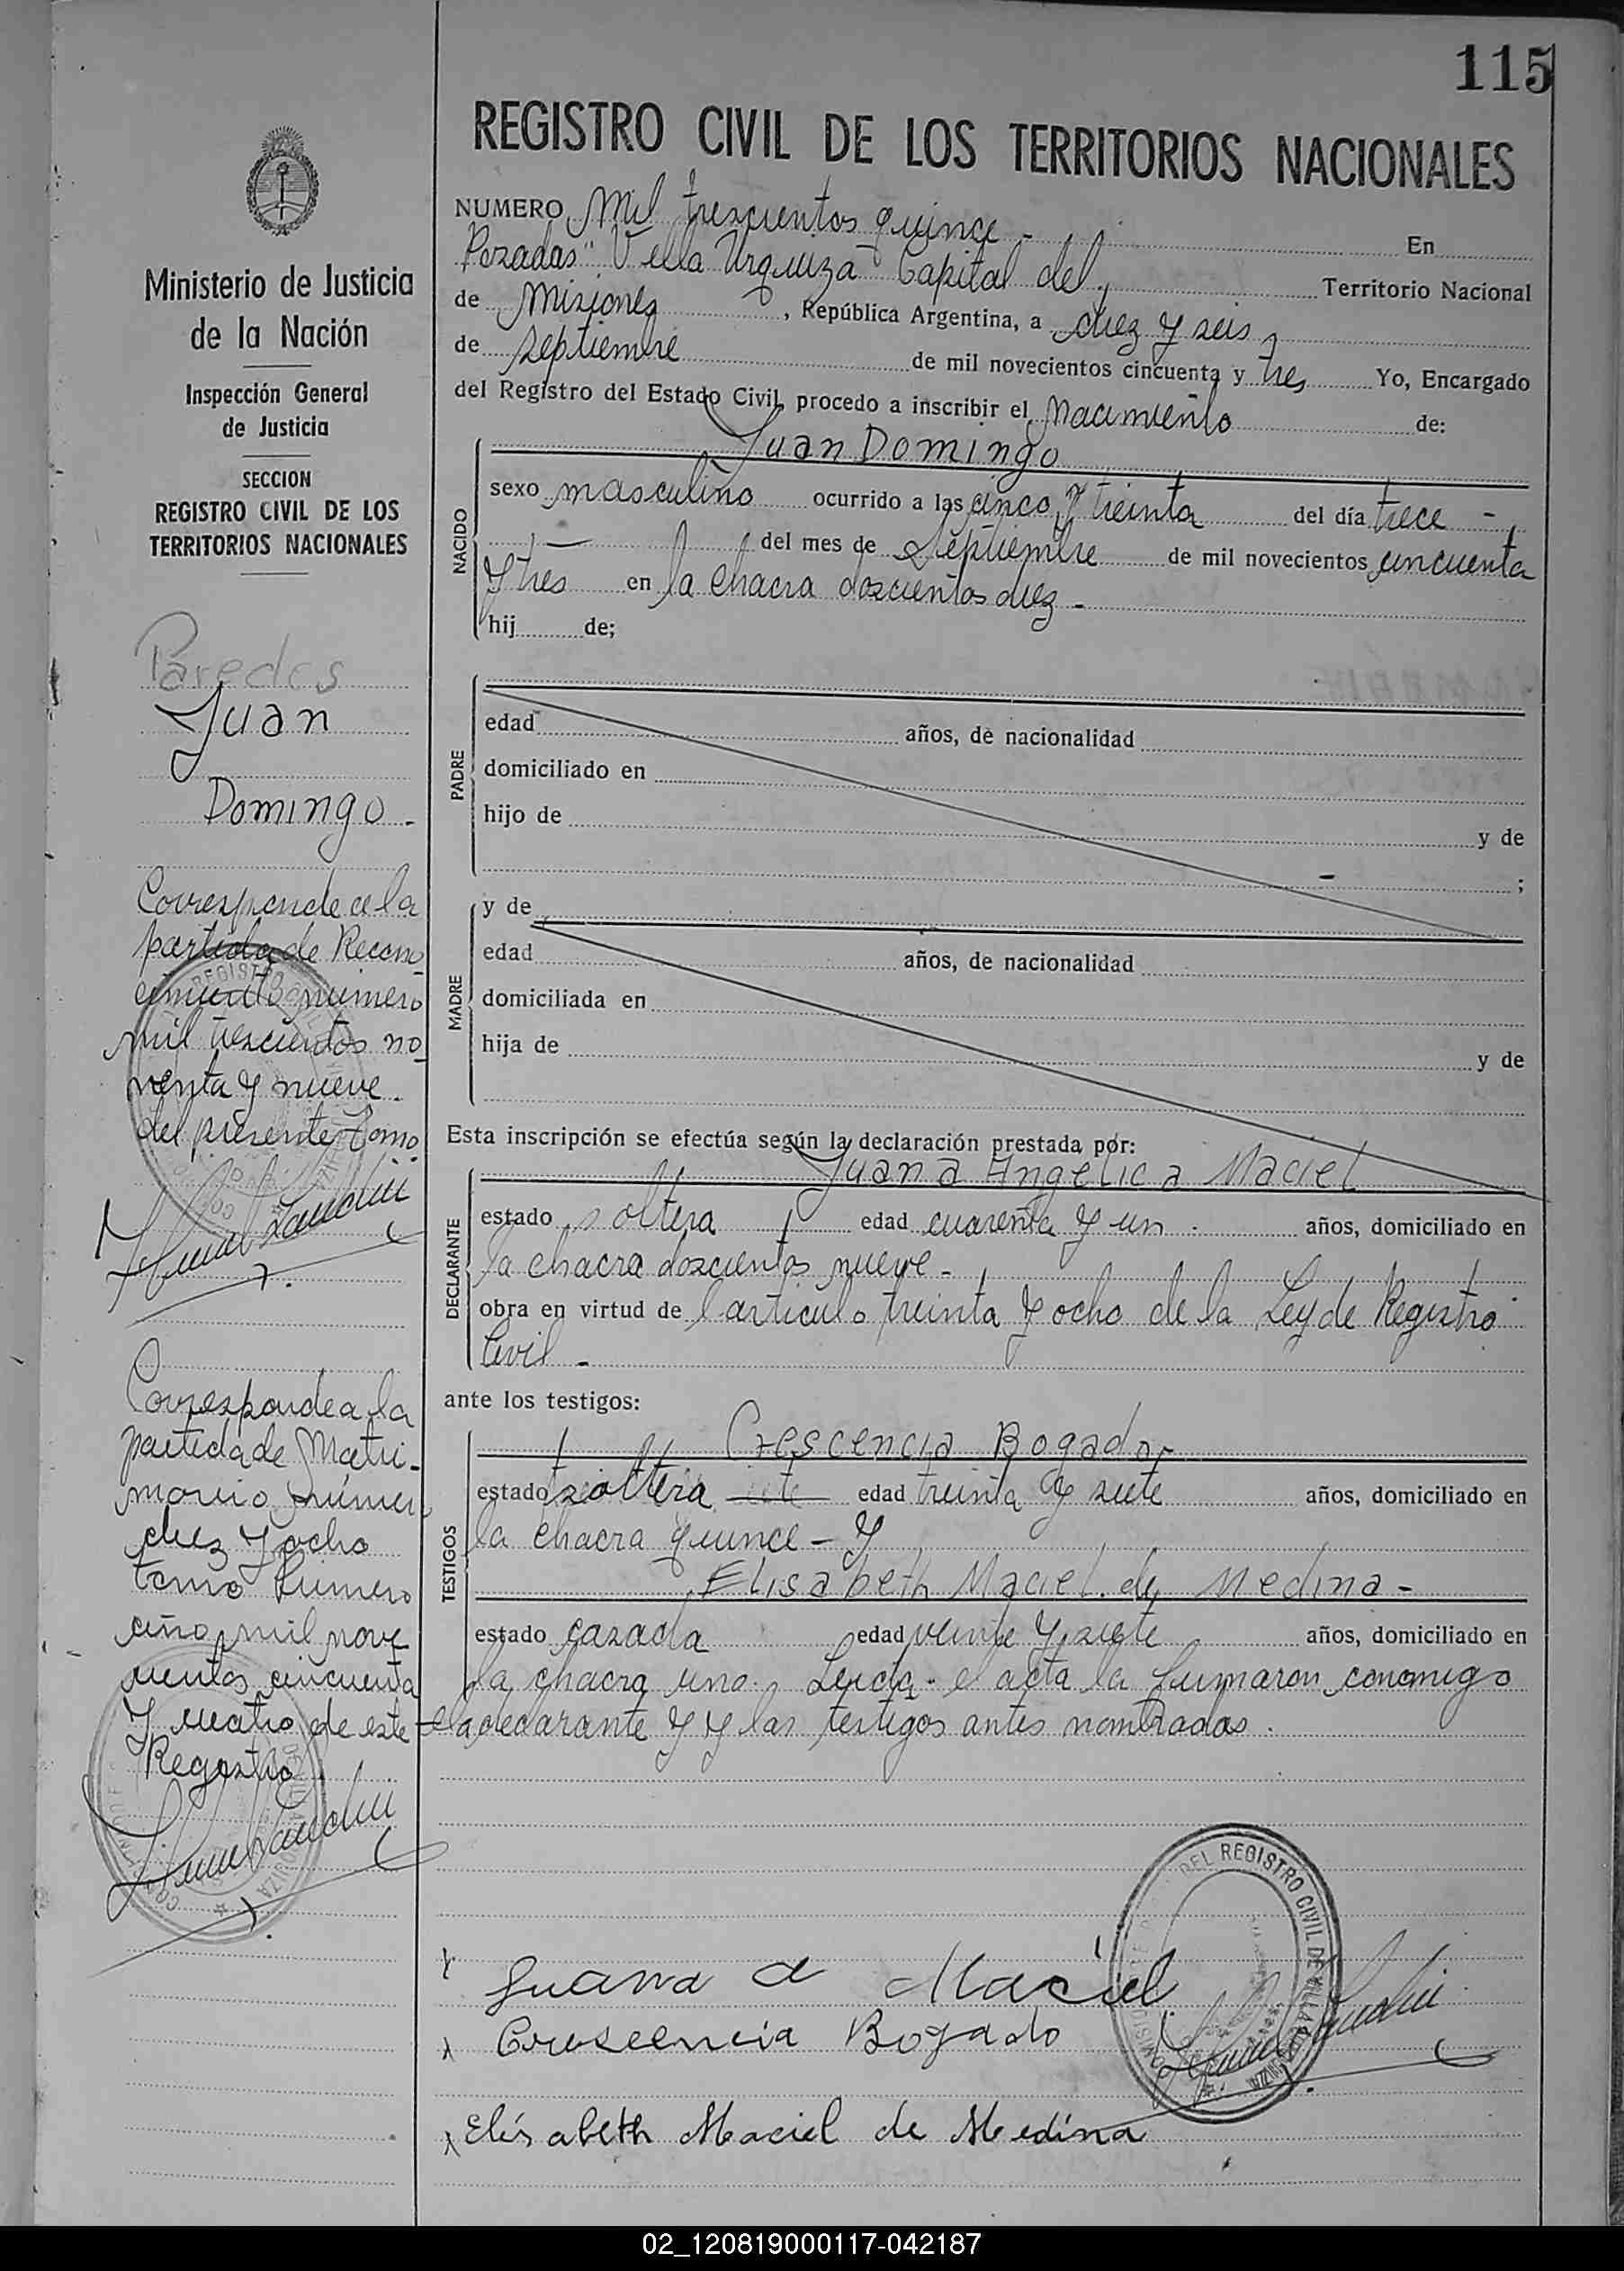 115
REGISTRO CIVIL DE LOS TERRITORIOS NACIONALES
NUMERO Mil trescientos quince - En
Pozadas "Villa Urquiza" Capital del Territorio Nacional
de Misiones, República Argentina, a diez y seis
de septiembre de mil novecientos cincuenta y tres Yo, Encargado
del Registro del Estado Civil, procedo a inscribir el Nacimiento de:
NACIDO
Juan Domingo
sexo masculino ocurrido a las cinco y treinta del día trece -
del mes de Septiembre de mil novecientos cincuenta
y tres en la chacra doscientos diez -
hij de;
PADRE
edad años, de nacionalidad
domiciliado en
hijo de y de
;
MADRE
y de
edad años, de nacionalidad
domiciliada en
hija de y de
Esta inscripción se efectúa según la declaración prestada por:
DECLARANTE
Juana Angelica Maciel
estado soltera edad cuarenta y un años, domiciliado en
la chacra doscientos nueve -
obra en virtud de l articulo treinta y ocho de la Ley de Registro
Civil -
ante los testigos:
TESTIGOS
Crescencia Bogado -
estado soltera edad treinta y siete años, domiciliado en
la chacra quince - y
Elisabeth Maciel de Medina -
estado casada edad veinte y siete años, domiciliado en
la chacra uno. Leida el acta la firmaron conmigo
la declarante y y las testigos antes nombradas.
Juana a Maciel
Crescencia Bogado
Elisabeth Maciel de Medina
DEL REGISTRO CIVIL DE VILLA URQUIZA
Ministerio de Justicia
de la Nación
Inspección General
de Justicia
SECCION
REGISTRO CIVIL DE LOS
TERRITORIOS NACIONALES
Paredes
Juan
Domingo -
Corresponde a la
partida de Recono
cimiento número
mil trescientos no
venta y nueve
del presente Tomo.
Corresponde a la
partida de Matri-
monio número
diez y ocho
tomo primero
año mil nove
cientos cincuenta
y cuatro de este
Registro
02_120819000117-042187